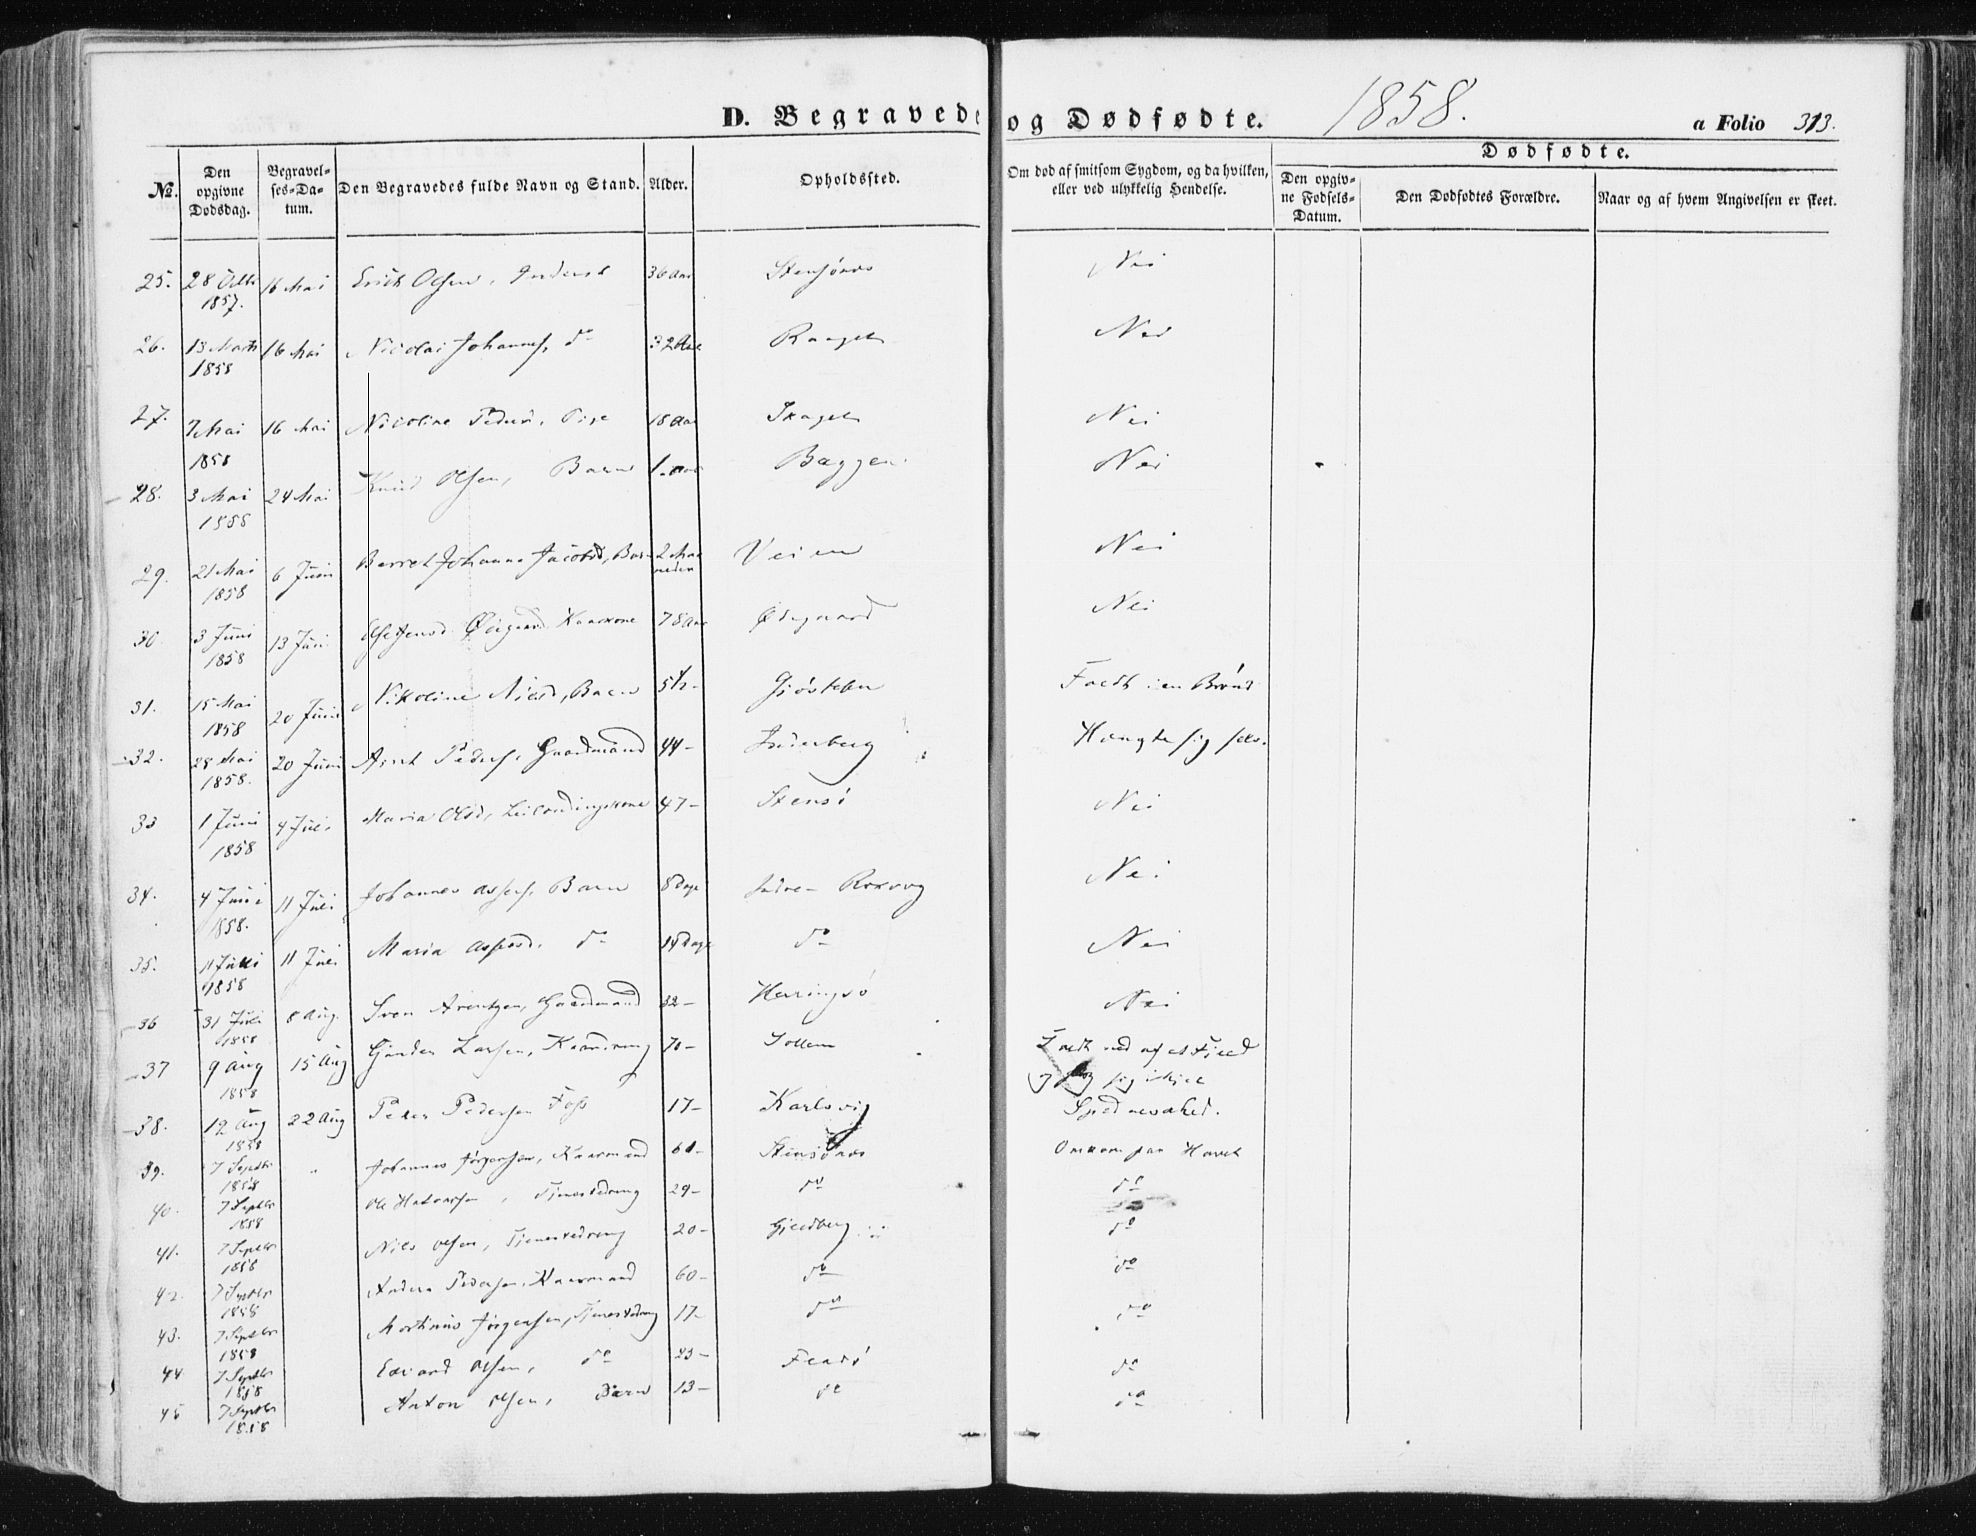 D. Begravede og Dødfødte. 1858. a Folio 313.
Dødfødte.
No. Den opgivne Dødsdag. Begravelses-Datum. Den Begravedes fulde Navn og Stand. Alder. Opholdssted. Om død af smitsom Sygdom, og da hvilken, eller ved ulykkelig Hendelse. Den opgivne Fødsels-Datum. Den Dødfødtes Forældre. Naar og af hvem Angivelsen er skeet.
25. 28 Octbr 1857. 16 Mai Erich Olsen, 36 Aar Nei
26. 13 Marts 1858 16 Mai Nicolai Johannes, do 32 Aar Nei
27. 7 Mai 1858 16 Mai Nicoline Peders, Pige 18 Aar Nei
28. 3 Mai 1858 24 Mai Knud Olsen, Barn 1 Aar Baggen Nei
29. 21 Mai 1858 6 Juni Berret Johanna Jacobsd, Barn 2 Maaneder Veien Nei
30. 3 Juni 1858 13 Juni Ødegaard Kaarkone 78 Aar Ødegaard Nei
31. 15 Mai 1858 20 Juni Nikoline Nilsd, Barn 5 1/2 - Faldt i en Brønd
32. 28 Mai 1858. 20 Juni Arnt Peders, Gaardmand 44 - Hængte sig selv.
33 1 Juni 1858 4 Juli Maria Olsd, Leilændingskone 47 - Stensø Nei
34. 4 Juni 1858. 11 Juli Johannes Barn 8 Dage Indre Nei
35. 11 Juni 1858 11 Juli Maria do 14 Dage do Nei
36 31 Juli 1858 8 Aug. Sven Arentzen, Gaardmand 32 - Nei
37 9 Aug 1858 15 Aug Larsen, 70 - Faldt ned af et Fjeld og slog sig ihjel
38. 12 Aug 1858 22 Aug Peter Pedersen Foss 17 - Karlsvig Spedalskhed.
39. 7 Septbr 1858 " Johannes Jørgensen, Kaarmand 61 - Omkom paa Havet
40. 7 Septbr 1858 Ole Tjenestedreng 29 - do do
41. 7 Septbr 1858 Nils Olsen, Tjenestedreng 20 - Gjedberg do
42. 7 Septbr 1858 Anders Pedersen, Kaarmand 60 - do do
43. 7 Septbr 1858 Martinus Jørgensen, Tjenestedreng 17 - do do
44 7 Septbr 1858 Edvard Olsen, do 23 - do
45 7 Septbr 1858 Anton Olsen, Barn 13 - do do